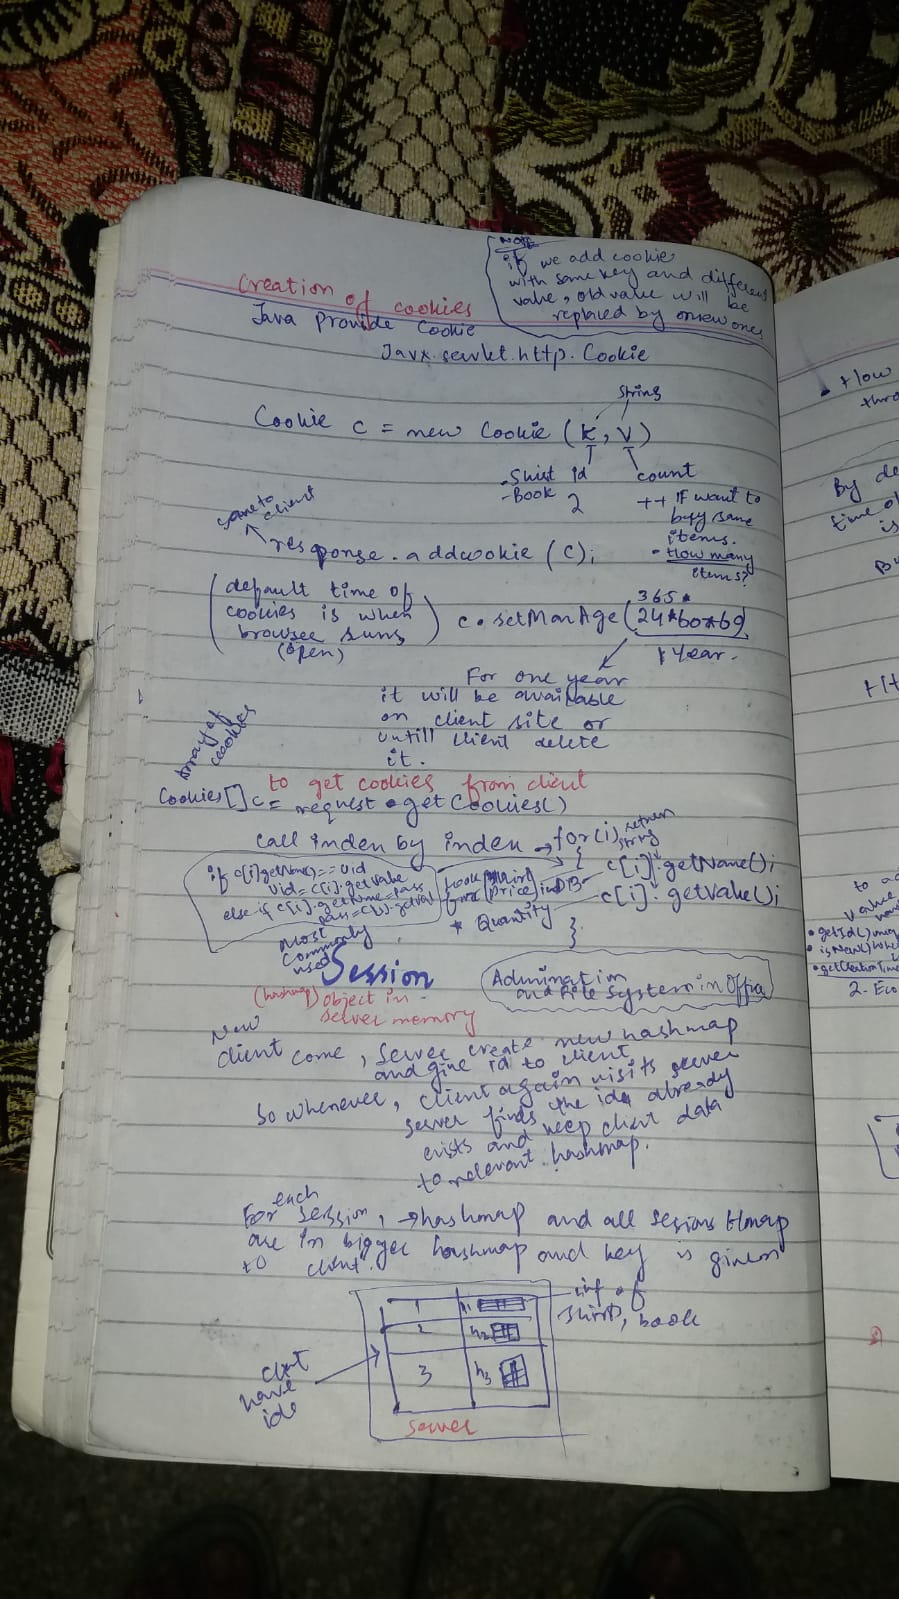 Note
if we add cookie
with same key and different
value, old value will be
replaced by new ones
Creation of cookies
Java Provide Cookie
Javx.servlet.http.Cookie
String
Cookie c = new Cookie (K, V)
- Shirt id
- Book 2
count
++ if want to
buy same
items.
• How many
items?
save to
client
response.addcookie (c);
(default time of
cookies is when
browser runs
(open)
365*
c.setMaxAge(24*60*60)
1 year.
For one year
it will be available
on client site or
untill client delete
it.
Array of
cookies
to get cookies from client
Cookies[] c = request.getCookies()
call index by index → for(i)
return
string
{ c[i].getName();
c[i].getValue();
}
if c[i].getName()==uid
uid = c[i].getValue
else if c[i].getName=pass
pass=c[i].getval
Price in DB
* Quantity
Most
commonly
used
Session
(hashmap) object in
server memory
Admination
and File System in Office
New
Client come, server create new hashmap
and give id to client
So whenever, client again visits server
server finds the ide already
exists and keep client data
to relevant hashmap.
For each session, → hashmap and all sessions Hmap
are in bigger hashmap and key is given
to client.
1 h1
2 h2
3 h3
inf of
shirts, book
client
have
ide
server
• How
thro
By de
time of
is
Bu
Ht
to ac
value
• getId()
• isNew() whe
• getCreationTime
2. Eco